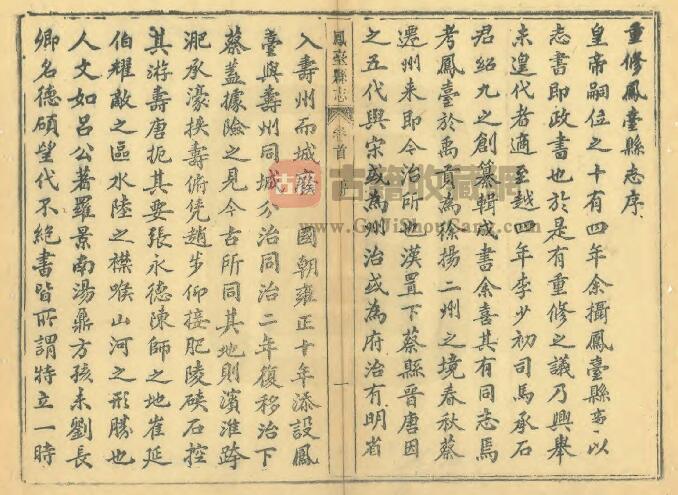 重修鳳臺縣志序
皇帝嗣位之十有四年余攝鳳臺縣事以
志書即政書也於是有重修之議乃興舉
未遑代者適至越四年李少初司馬承石
君紹九之創纂輯成書余喜其有同志焉
考鳳臺於禹貢為徐揚二州之境春秋蔡
遷州来即今治所也漢置下蔡縣晉唐因
之五代與宋或為州治或為府治有明省
鳳臺縣志
卷首
序
一
入壽州而城廢 國朝雍正十年添設鳳
臺與壽州同城分治同治二年復移治下
蔡蓋據險之見今古所同其地則濱淮跨
淝承濠挾壽俯凭趙步仰接肥陵硤石控
其游壽唐扼其要張永德陳師之地崔延
伯耀敵之區水陸之襟喉山河之形勝也
人文如呂公著羅景南湯鼐方孩未劉長
卿名德碩望代不絶書皆所謂特立一時
古籍收藏網
www.GuJiShouCang.com